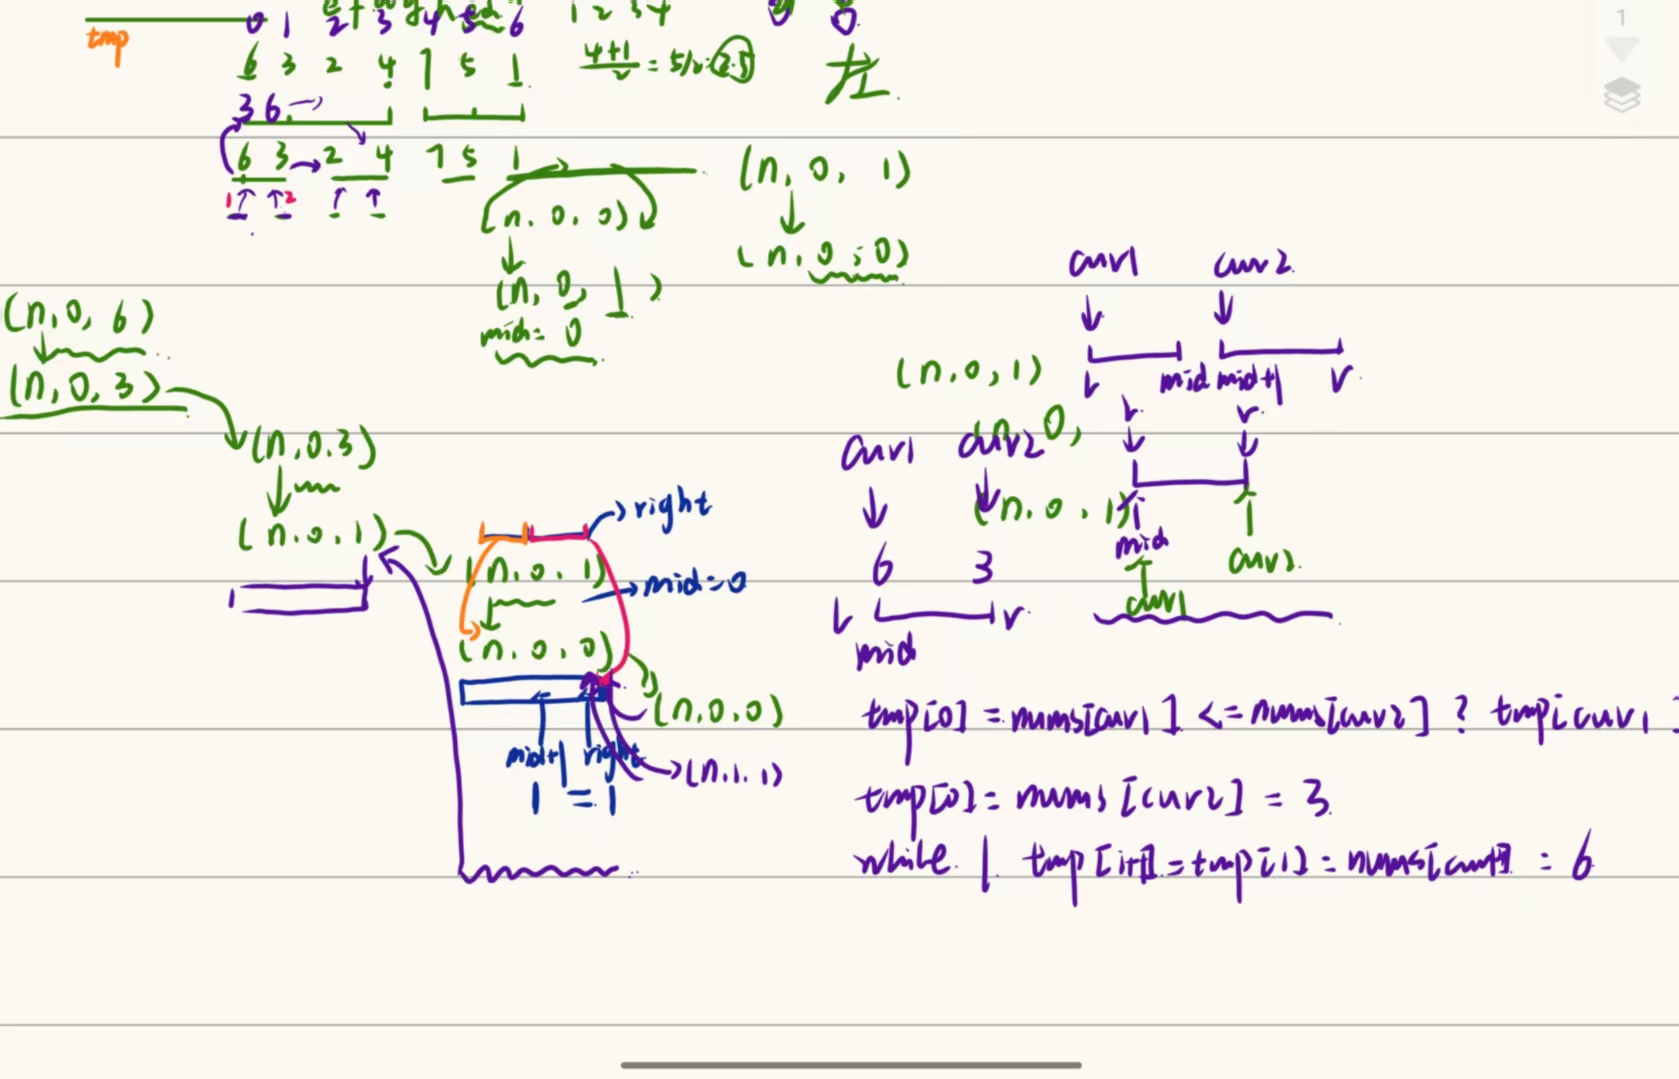 0 1 2 3 4 5 6
tmp
6 3 2 4 7 5 1
4+1/2 = 5/2 = 2.5
左
3 6
6 3 → 2 4 7 5 1
1 2
(n, 0, 0)
(n, 0, 1)
mid = 0
(n, 0, 1)
(n, 0, 0)
(n, 0, 6)
(n, 0, 3)
(n, 0, 3)
(n, 0, 1)
right
(n, 0, 1)
mid = 0
(n, 0, 0)
(n, 0, 0)
mid+1 right
1 = 1
(n, 1, 1)
cur1 cur2
l mid mid+1 r
(n, 0, 1)
(n, 0,
(n, 0, 1)
l r
mid
cur1 cur2
cur1 cur2
6 3
l r
mid
tmp[0] = nums[cur1] <= nums[cur2] ? tmp[cur1]
tmp[0] = nums[cur2] = 3
while tmp[i++] = tmp[1] = nums[cur1] = 6
1